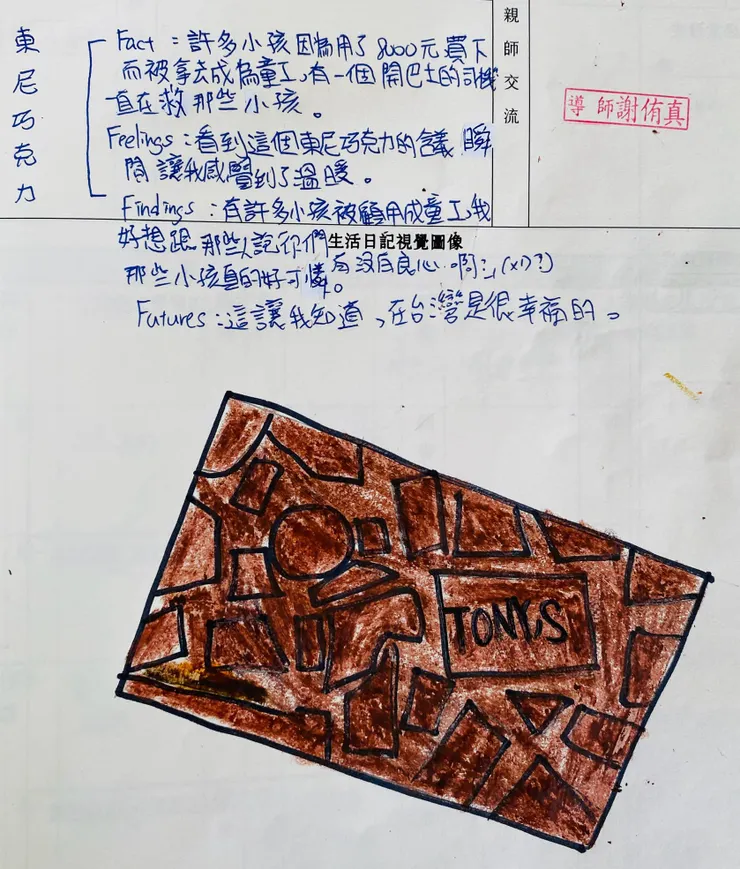 東尼巧克力
Fact：許多小孩因為用了8000元買下
而被拿去成為童工,有一個開巴士的司機
直在救那些小孩。
Feelings：看到這個東尼巧克力的含義瞬
間讓我感覺到了溫暖。
Findings：有許多小孩被顧用成童工,我
好想跟那些人說你們
有沒有良心啊
那些小孩真的好可憐。
Futures：這讓我知道、在台灣是很幸福的。
親師交流
導師謝侑真
生活日記視覺圖像
TONY,S